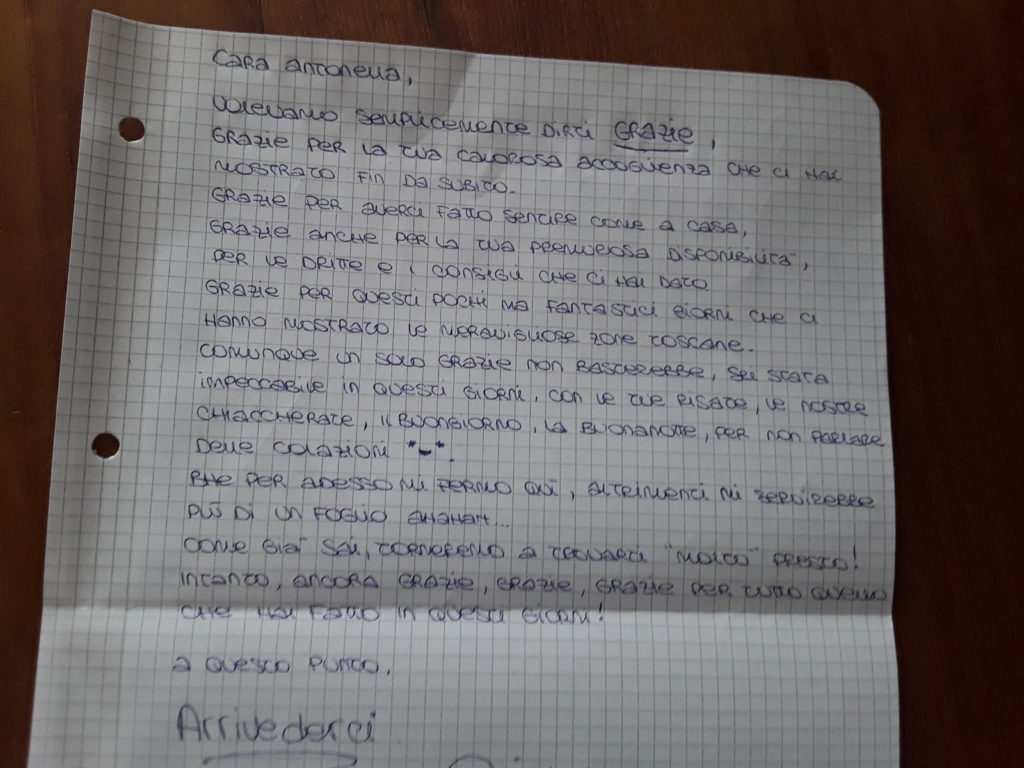 Cara Antonella,
Volevamo semplicemente dirti GRAZIE,
Grazie per la tua calorosa accoglienza che ci hai
mostrato fin da subito.
Grazie per averci fatto sentire come a casa,
Grazie anche per la tua premurosa disponibilità,
per le dritte e i consigli che ci hai dato
Grazie per questi pochi ma fantastici giorni che ci
hanno mostrato le meravigliose zone toscane.
Comunque un solo grazie non basterebbe, sei stata
impeccabile in questi giorni, con le tue risate, le nostre
chiaccherate, il buongiorno, la buonanotte, per non parlare
delle colazioni *-*.
Beh per adesso mi fermo qui, altrimenti mi servirebbe
più di un foglio ahahah...
Come già sai, torneremo a trovarti "molto" presto!
Intanto, ancora grazie, grazie, grazie per tutto quello
che hai fatto in questi giorni!
A questo punto,
Arrivederci